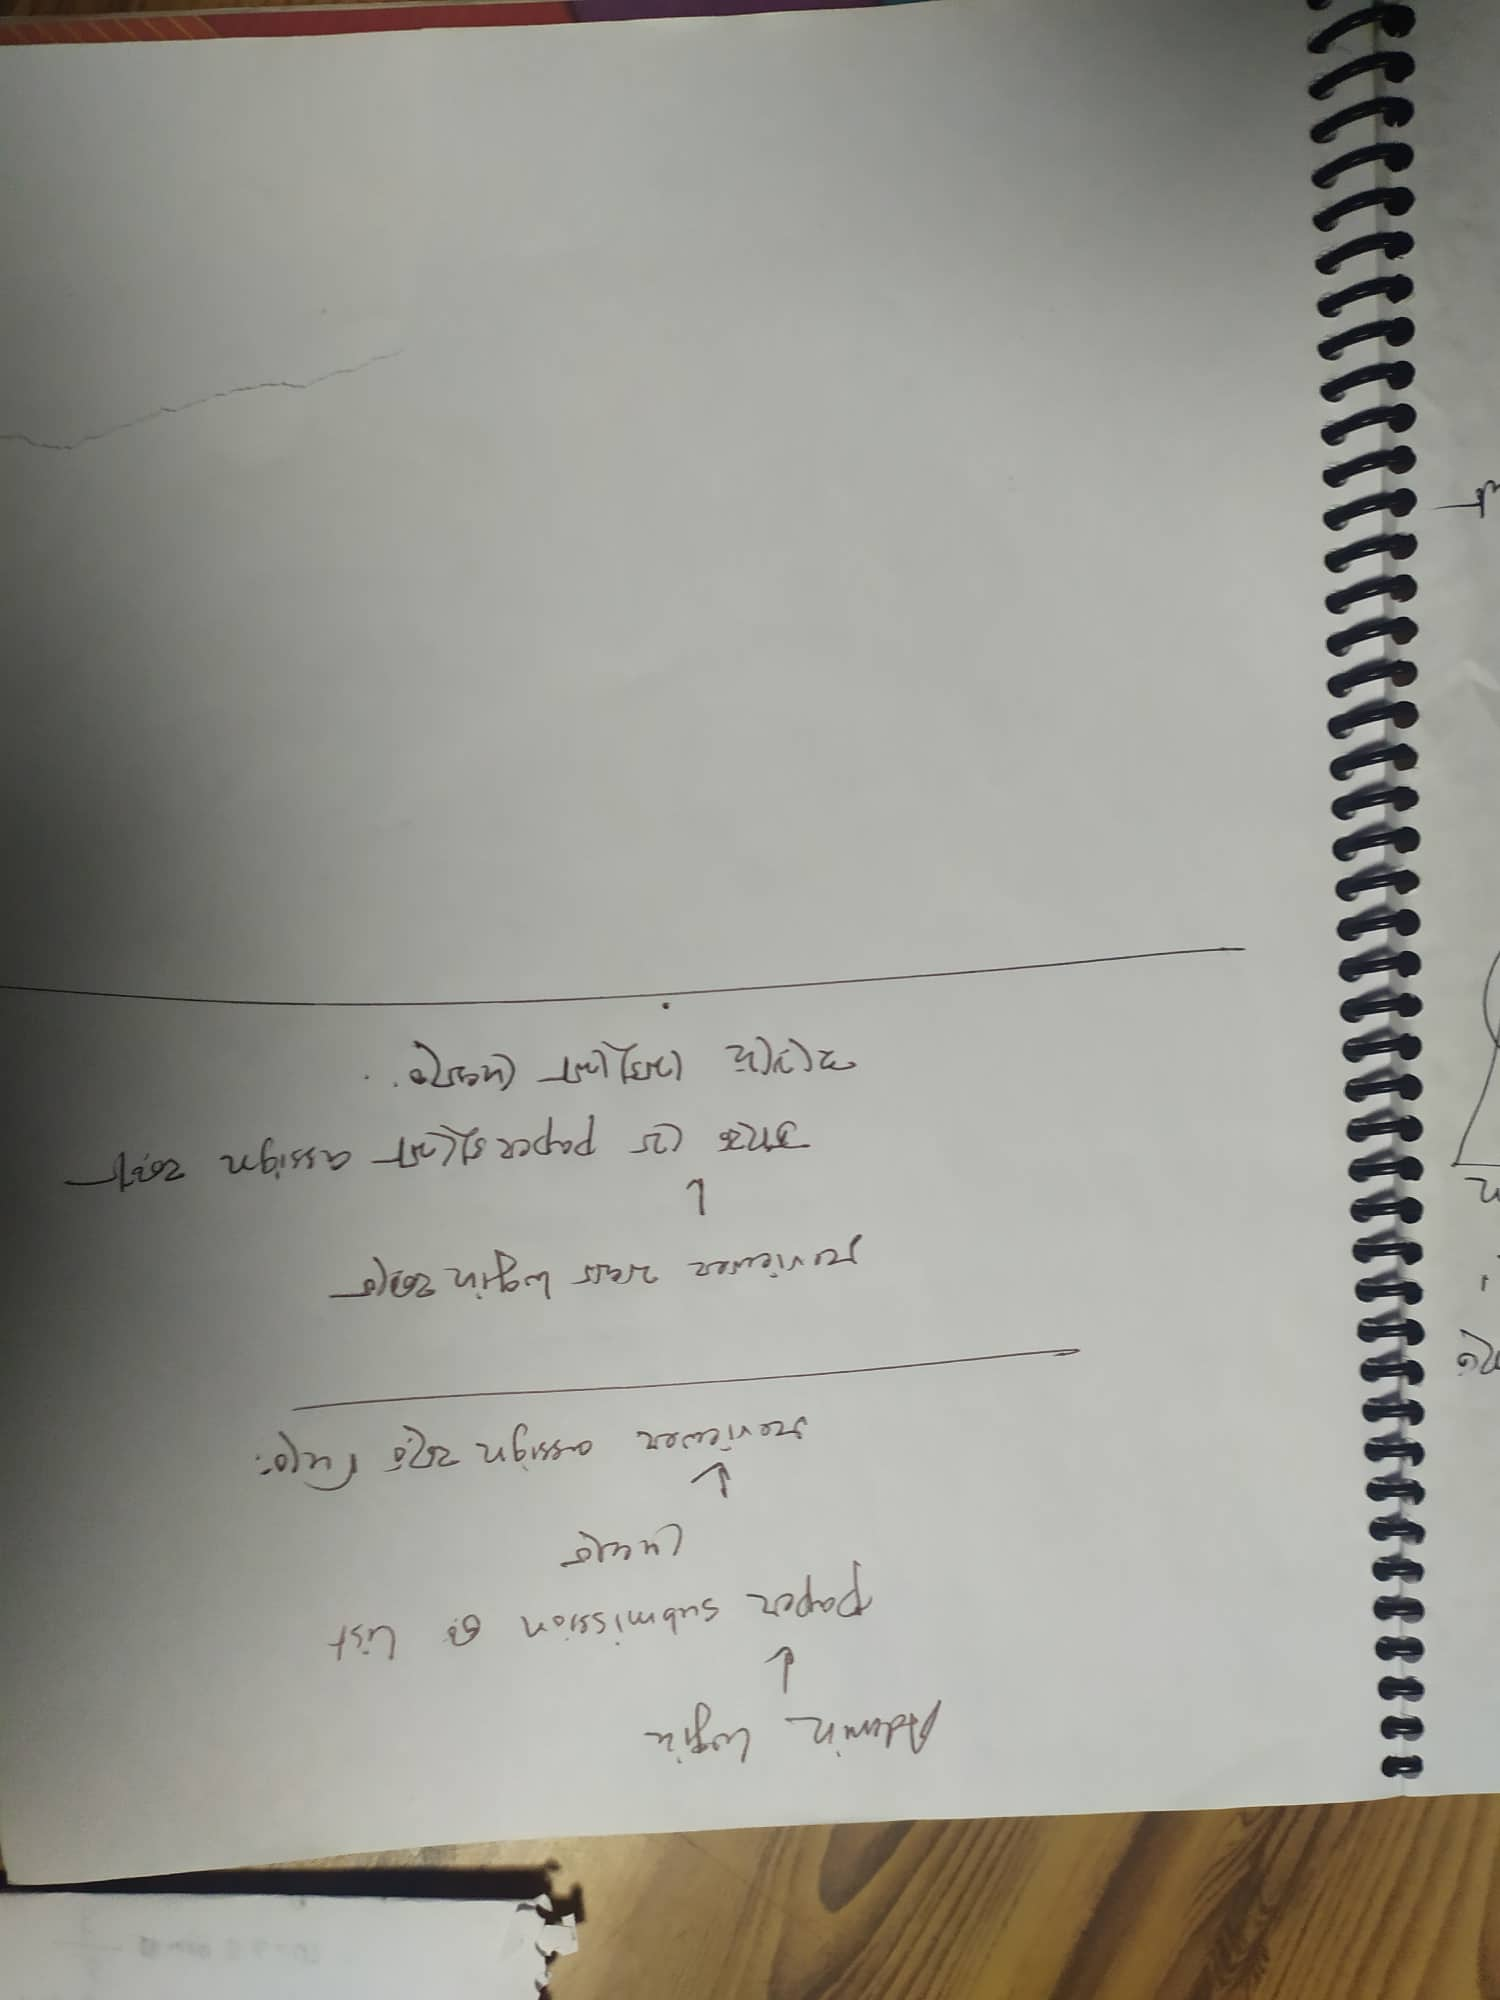 Admin Login
↓
Paper submission এ List
দেখবে
↓
reviewer assign করে দেবে।
reviewer যখন login করবে
↓
তাকে যে paper গুলো assign করা
হয়েছে সেগুলো দেখাবে।